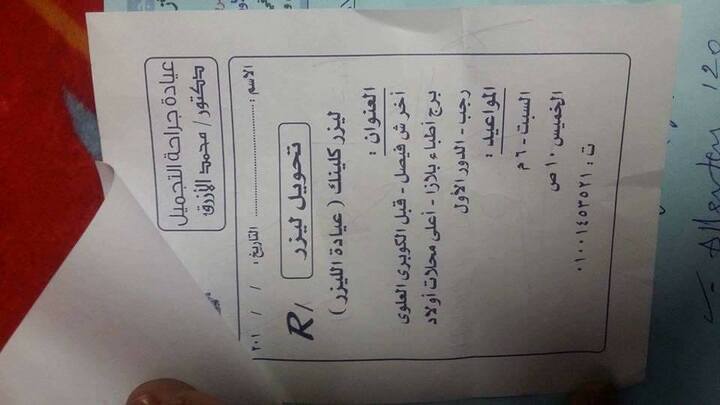 عيادة جراحة التجميل
دكتور / محمد الأزرق
الاسم : ............................ التاريخ : / / ٢٠١
R/ تحويل ليزر
ليزر كلينك ( عيادة الليزر )
العنوان :
أخر ش فيصل - قبل الكوبرى العلوى
برج أطباء بلازا - أعلى محلات أولاد
رجب - الدور الأول
المواعيد :
السبت - ٦ م
الخميس ١٠ ص
ت : ٠١٠٠١٤٥٣٥٢١
120